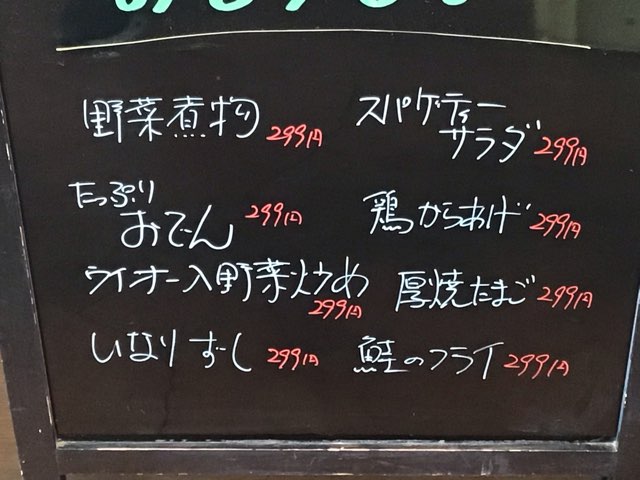 野菜煮物 299円
スパゲティー
サラダ 299円
たっぷり
おでん 299円
鶏からあげ 299円
ライオー入野菜炒め
299円
厚焼たまご 299円
いなりずし 299円
鮭のフライ 299円